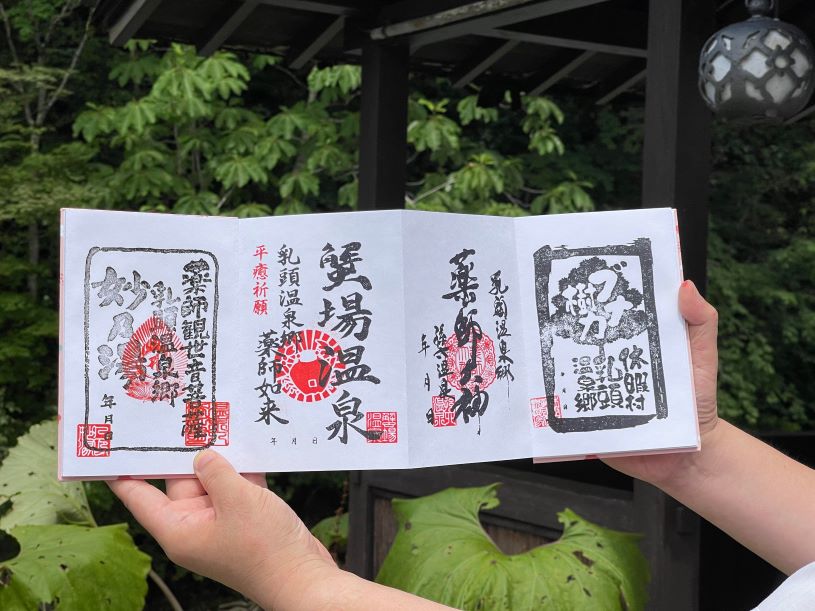 ブナ
休暇村
乳頭
温泉郷
乳頭温泉郷
薬師大神
年 月 日
蟹場温泉
薬師如来
乳頭温泉郷
平癒祈願
年 月 日
薬師観世音菩薩
乳頭温泉郷
妙乃湯
年 月 日